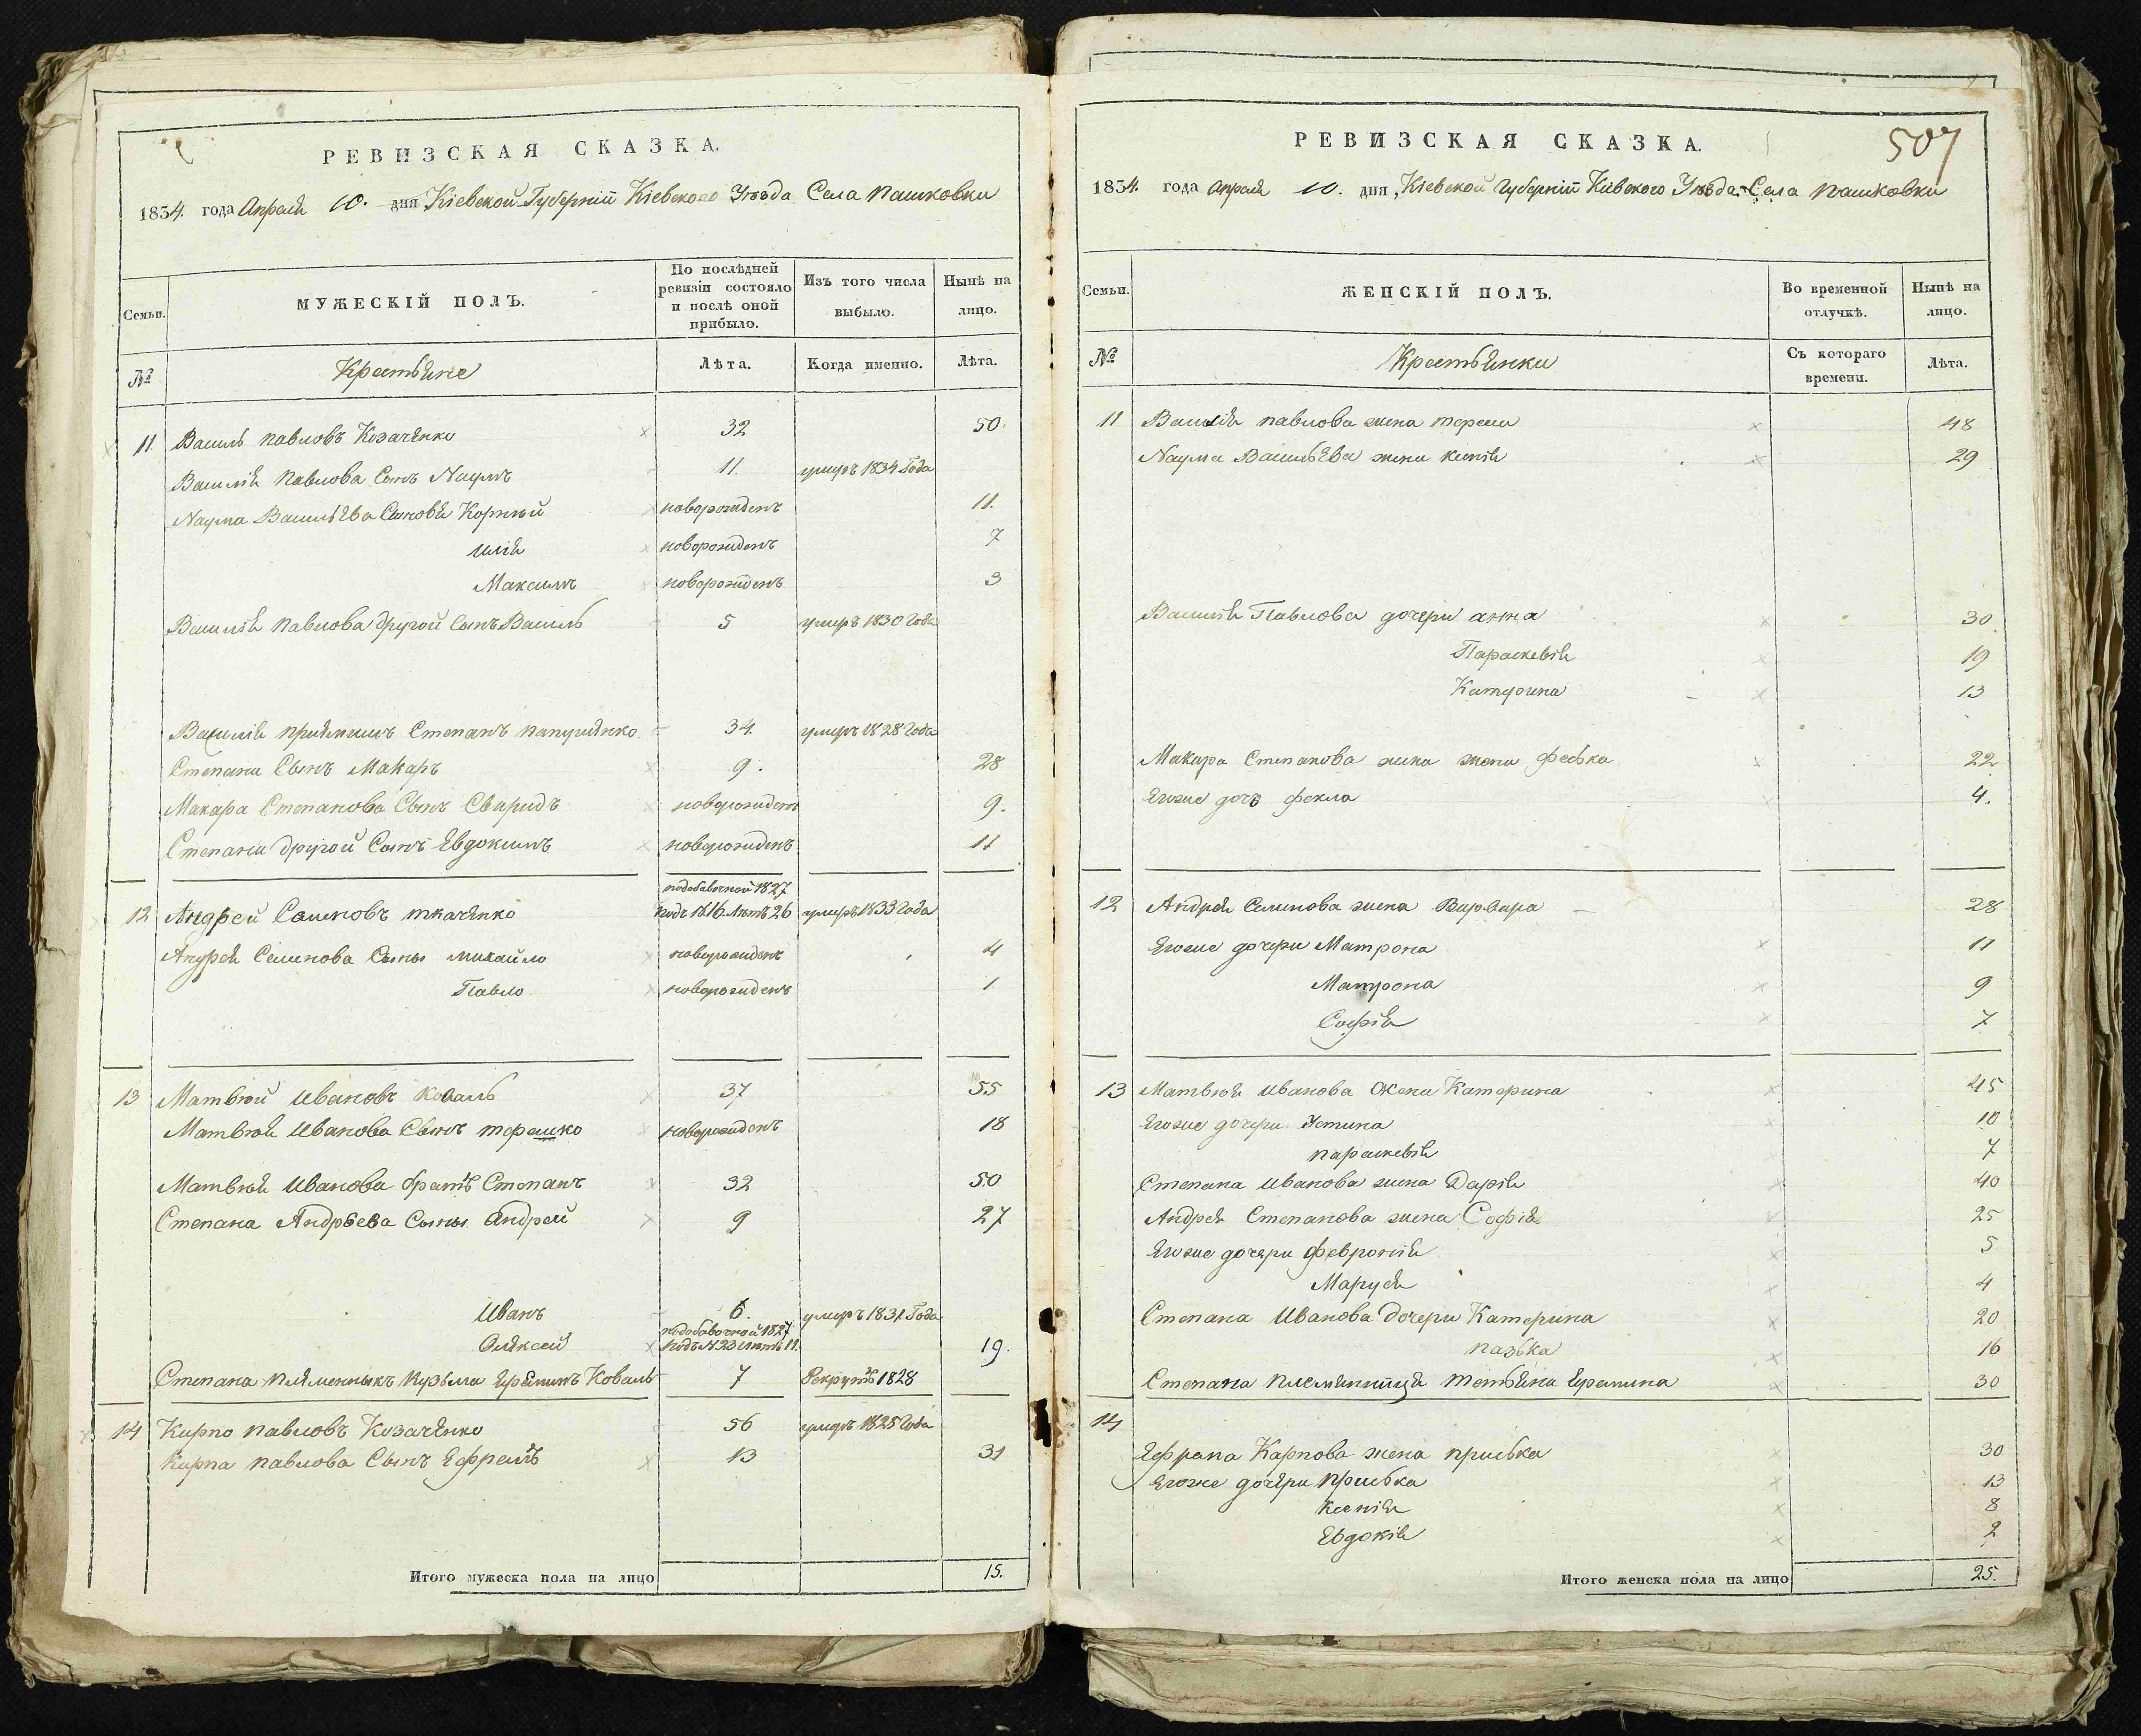 РЕВИЗСКАЯ СКАЗКА.
1834. года Апреля 10. дня Кіевской Губерніи Кіевского Уѣзда Села Пашковки
Семьи.
МУЖЕСКІЙ ПОЛЪ.
По послѣдней ревизіи состояло и послѣ оной прибыло.
Изъ того числа выбыло.
Нынѣ на лицо.
№
Крестьяне
Лѣта.
Когда именно.
Лѣта.
11. Василь павловъ Козаченко 32 50.
Василія Павлова Сынъ Наумъ 11. умиръ 1834 Года
Наума Васильева Сыновя Корнѣй новорожденъ 11.
илія новорожденъ 7
Максимъ новорожденъ 3
Василія Павлова другой сынъ Василь 5 умиръ 1830 Года
Василія приямышъ Степанъ 34. умиръ 1828 Года
Степана Сынъ Макаръ 9. 28
Макара Степанова Сынъ Свиридъ новорожденъ 9.
Степана другой Сынъ Евдокимъ новорожденъ 11
подобавочной 1827
12 Андрей Семеновъ ткаченко подъ №16 Лѣтъ 26 умиръ 1833 Года
Андрея Семенова Сыны михайло новорожденъ 4
Павло новорожденъ 1
13 Матвѣй ивановъ Коваль 37 55
Матвѣя Иванова Сынъ терешко новорожденъ 18
Матвѣя Иванова братъ Степанъ 32 50
Степана Андрѣева Сыны Андрей 9 27
Иванъ 6. умиръ 1831. Года
подобавочной 1827
Олексей подъ №23 Лѣтъ 11. 19.
Степана племенныкъ Кузьма Коваль 7 Рекрутъ 1828
14 Карпо павловъ Козаченко 56 умиръ 1825 Года
Карпа павлова Сынъ Ефремъ 13 31
Итого мужеска пола на лицо 15.
507
РЕВИЗСКАЯ СКАЗКА.
1834. года Апреля 10. дня, Кіевской Губерніи Кіевского Уѣзда Села Пашковки
Семьи.
ЖЕНСКІЙ ПОЛЪ.
Во временной отлучкѣ.
Нынѣ на лицо.
№
Крестьянки
Съ котораго времени.
Лѣта.
11 Василія павлова жена 48
Наума Васильева жена ксенія 29
Василія Павлова дочери анна 30
Параскевія 19
Катерина 13
Макара Степанова жена феська 22
Егоже дочъ фекла 4.
12 Андрея Семенова жена Варвара 28
Егоже дочери Матрона 11
Матрона 9
Софія 7
13 Матвѣя иванова Жена Катерина 45
Егоже дочери Устина 10
параскевія 7
Степана иванова жена Дарія 40
Андрея Степанова жена Софія 25
Егоже дочери Февронія 5
Маруся 4
Степана Иванова дочери Катерина 20
пазька 16
Степана племянница Тетьяна Еремина 30
14
Ефрама Карпова жена приська 30
Егоже дочери приська 13
Ксенія 8
Евдокія 2
Итого женска пола на лицо 25.